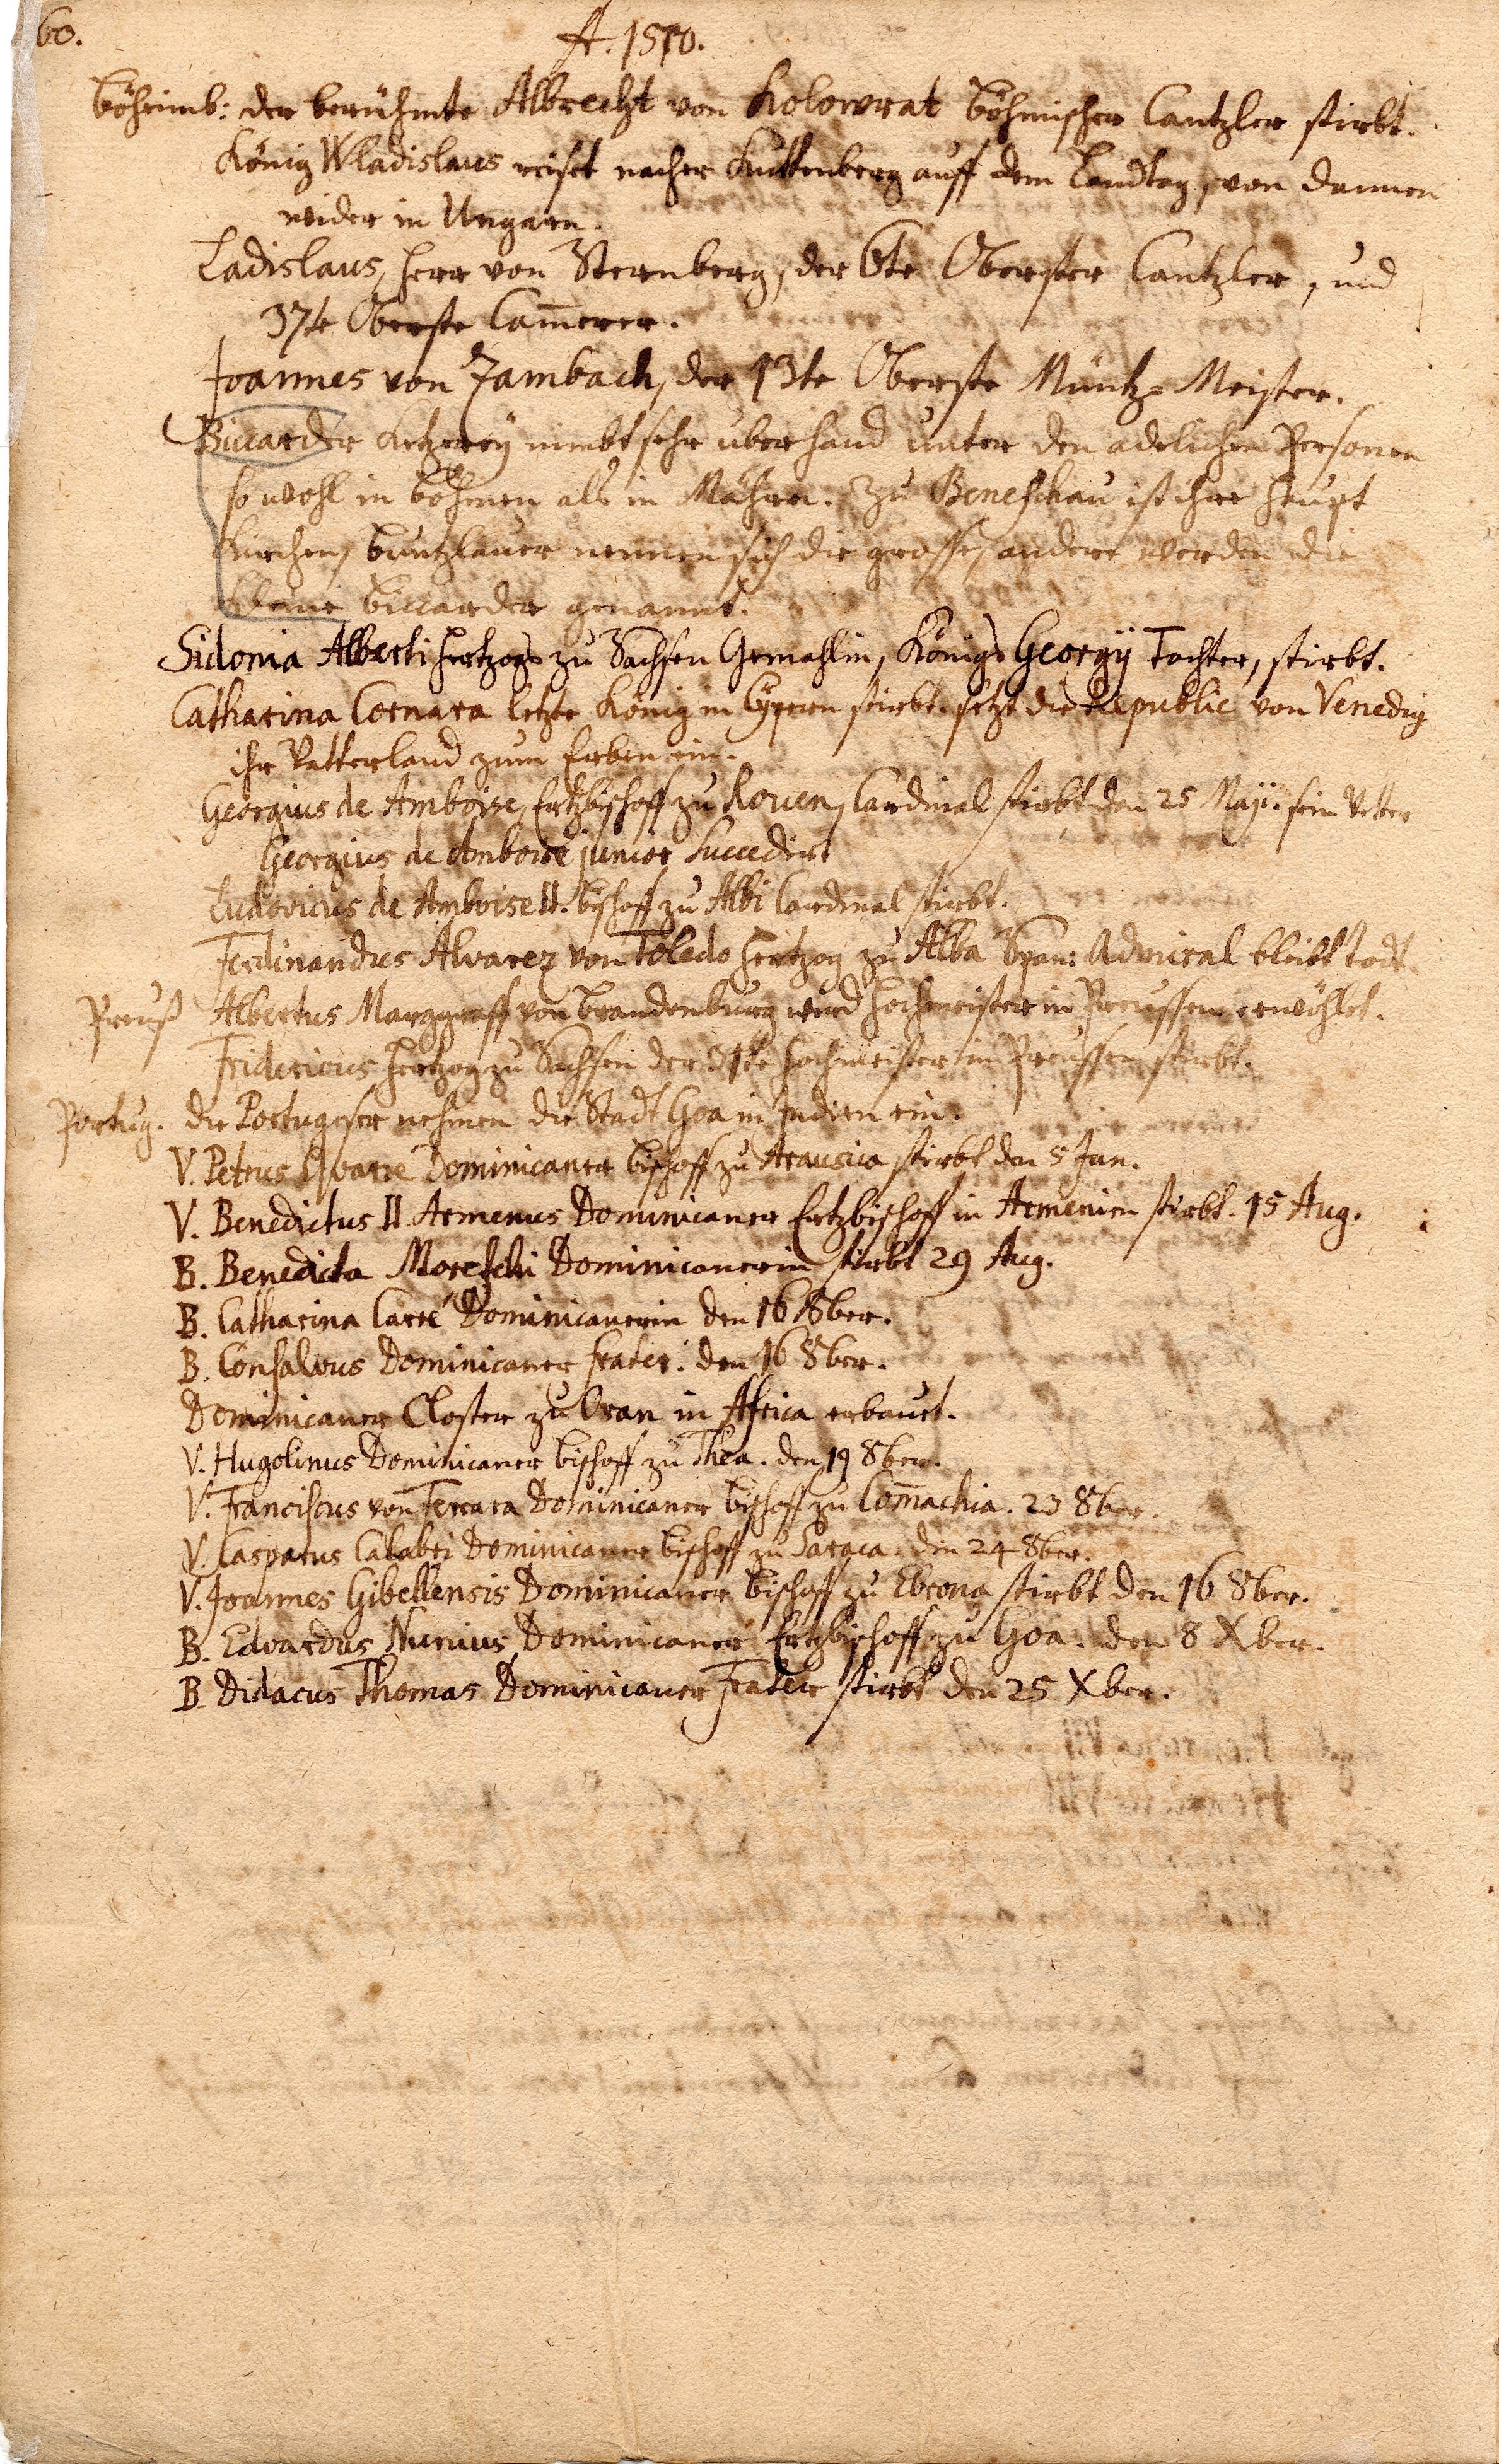 60.
A. 1510.
Böheimb: der berühmte Albrecht von Kolowrat Böhmischer Cantzler stirbt.
König Wladislaus reiset nacher Kuttenberg auff dem Landtag, von dannen
wider in Ungarn.
Ladislaus, Herr von Sternberg, der 6te Oberster Cantzler, und
37te Oberste Cam̄erer.
Joannes von Zambach, der 13te Oberste Müntz-Meister.
Biccarder Ketzerey nimbt sehr uberhand unter den adelichen Personen
so wohl in Böhmen als in Mähren. Zu Beneschau ist ihre Haupt
Kirchen, Buntzlauer nennen sich die grosse, andere werden die
kleine Biccarder genannt.
Sidonia Alberti Hertzogs zu Sachsen Gemahlin, Königs Georgÿ Tochter, stirbt.
Catharina Cornara letzte Königin Cÿpern stirbt. setzt die Republic von Venedig
ihr Vatterland zum Erben ein.
Georgius de Amboise, Ertzbischoff zu Rouen, Cardinal stirbt den 25 Maji. sein Vetter
Georgius de Amboise junior Succedirt
Ludovicus de Amboise II. Bischoff zu Albi Cardinal stirbt.
Ferdinandus Alvarez von Toledo Hertzog zu Alba Span: Admiral bleibt todt.
Preuß Albertus Marggraff von Brandenburg wird Hochmeister in Preussen erwöhlet.
Fridericus Hertzog zu Sachsen der 31te Hochmeister in Preussen stirbt.
Portug. die Portugeser nehmen die Stadt Goa in Indien ein.
V. Petrus Dominicaner Bischoff zu Arausica stirbt den 5 Jan.
V. Benedictus II. Armenus Dominicaner Ertzbischoff in Armenien stirbt. 15 Aug.
B. Benedicta Moreschi Dominicanerin stirbt 29 Aug.
B. Catharina Carré Dominicanerin den 16 8ber.
B. Consalvus Dominicaner frater. den 16 8ber.
Dominicaner Closter zu Oran in Africa erbauet.
V. Hugolinus Dominicaner Bischoff zu Thea. den 19 8ber.
V. Franciscus von Ferrara Dominicaner Bischoff zu Com̄achia. 23 8ber.
V. Casparus Calabri Dominicaner Bischoff zu Saraca. den 24 8ber.
V. Joannes Gibellensis Dominicaner Bischoff zu Ebrona stirbt den 16 8ber.
B. Edvardus Nunius Dominicaner Ertzbischoff zu Goa. den 8 Xber.
B. Didacus Thomas Dominicaner Frater stirbt den 25 Xber.